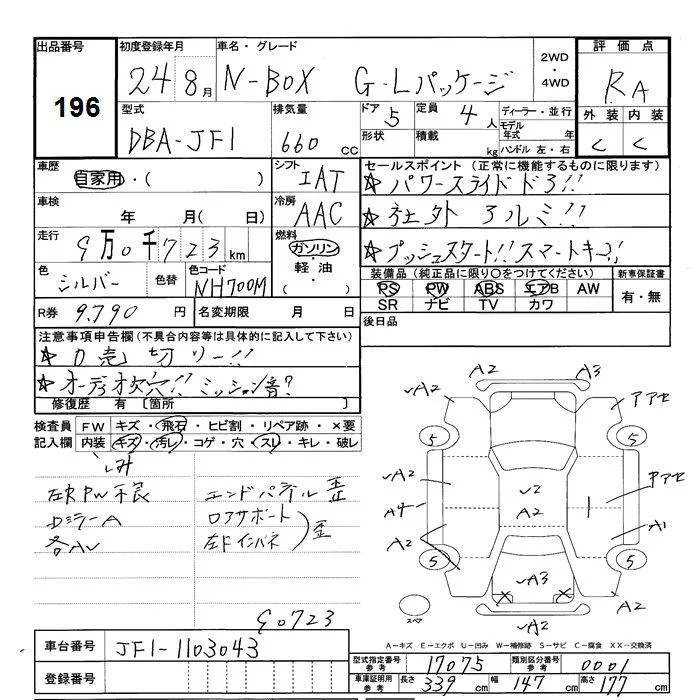 出品番号 初度登録年月 車名・グレード 2WD・4WD 評価点
196 24 8月 N-BOX G・Lパッケージ RA
型式 排気量 ドア 5 定員 4人 ディーラー・並行 外装 内装
DBA-JF1 660cc 形状 積載 kg モデル年式 年 ハンドル 左・右 C C
車歴 自家用・( ) シフト IAT セールスポイント (正常に機能するものに限ります)
☆パワースライドドア!!
車検 年 月( 日) 冷房 AAC ☆社外アルミ!!
走行 9万0千723km 燃料 ガソリン・軽油・ ☆プッシュスタート!! スマートキー!!
色 シルバー 色替 色コード NH700M 装備品 (純正品に限り○をつけてください) 新車保証書
PS PW ABS エアB AW 有・無
SR ナビ TV カワ
R券 9.790円 名変期限 月 日 後日品
注意事項申告欄(不具合内容等は具体的に記入して下さい)
☆ 売切り!!
☆オーディオ欠穴!! ミッション音?
修復歴 有〔箇所 〕
検査員記入欄 FW キズ・飛石・ヒビ割・リペア跡・×要
内装 キズ・汚レ・コゲ・穴・スレ・キレ・破レ
しみ
左R PW不良 エンドパネル歪
DミラーA ロアサポート
各AU 左Fインパネ 歪
90723
A2 A3
A2 アアセ
5 5
A2 アアセ
A4 √2 A2 1
A2 A1
5 5
A3
× ×
A2 A2
スペア
A-キズ E-エクボ U-凹み W-補修跡 S-サビ C-腐食 XX-交換済
車台番号 JF1-1103043
登録番号
型式指定番号 参考 17075 類別区分番号 参考 0001
車庫証明用 参考 長さ 339cm 幅 147cm 高さ 177cm